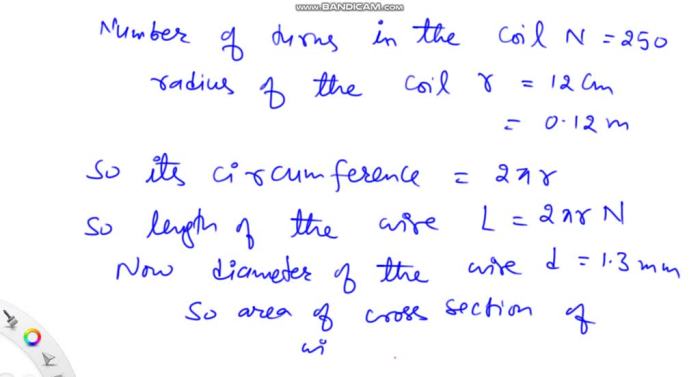 www.BANDICAM.com
Number of turns in the coil N = 250
radius of the coil r = 12 cm
= 0.12 m
So its circumference = 2πr
So length of the wire L = 2πr N
Now diameter of the wire d = 1.3 mm
So area of cross section of
wi